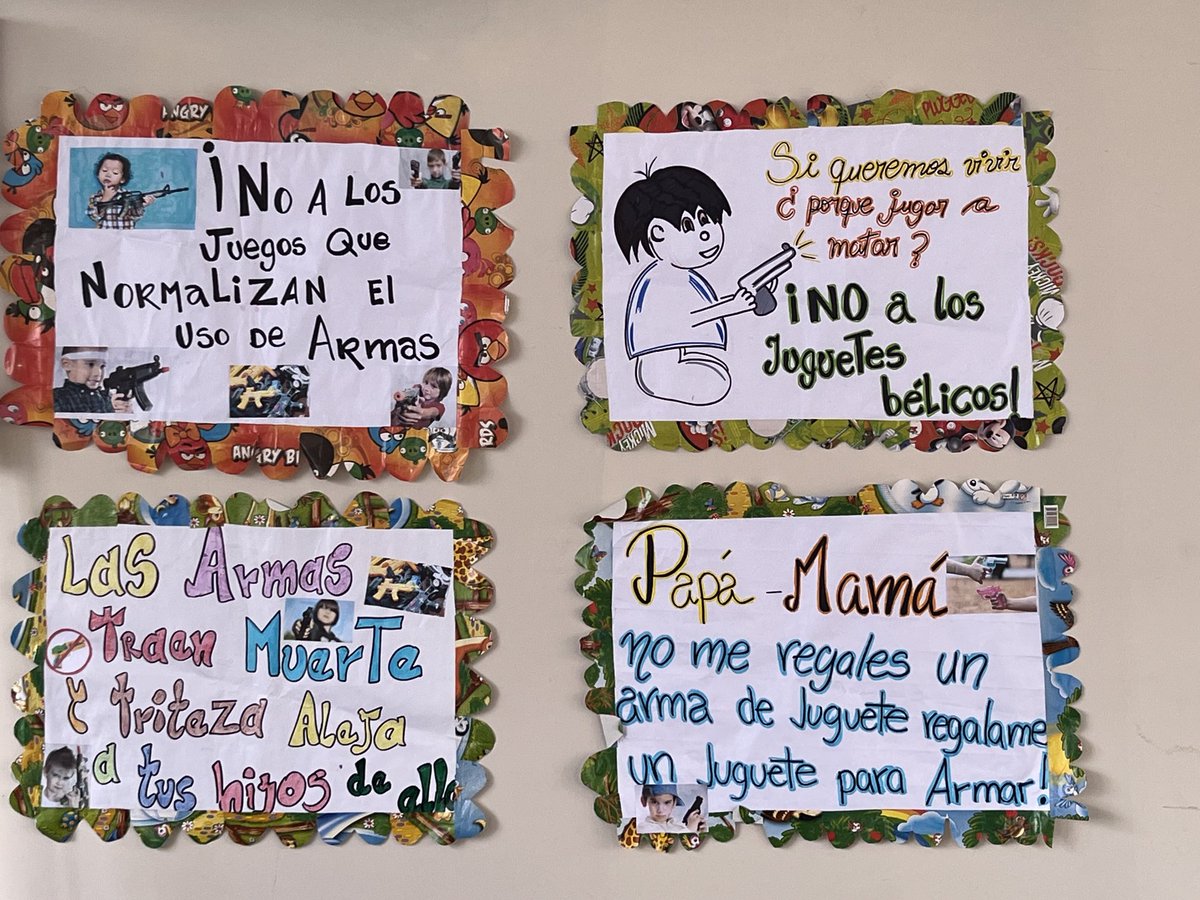 ¡No A LOS
Juegos Que
NORMaLIZAN El
uso de ARmas
Si queremos vivir
¿porque jugar a
matar?
¡NO a los
JugueTes
bélicos!
Las Armas
Traen MuerTe
y triteza Aleja
a tus hijos de
Papá - Mamá
no me regales un
arma de JugueTe regalame
un Juguete para Armar!
ANGRY
ANGRY BI
RDS
PLUGGED
MICKEY
MICKEY